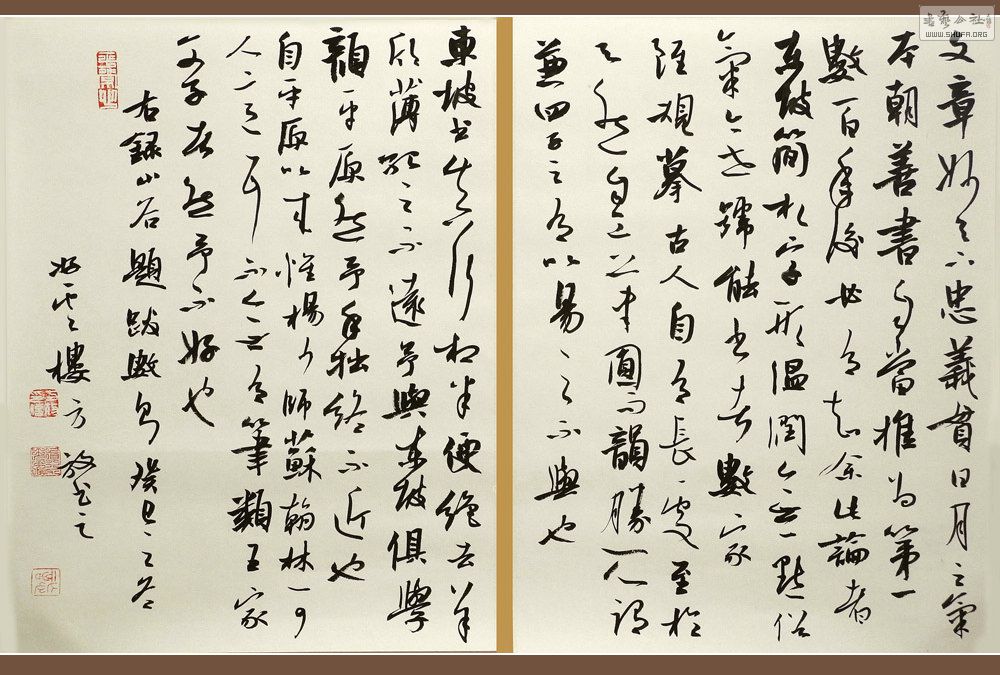 文章妙天下忠義貫日月之氣
本朝善書自當推為第一
數百年後必有知余此論者
東坡簡札字形溫潤無一點俗
氣今世號能書者數家
雖規摹古人自有長處至於
天然自工筆圓而韻勝所謂
兼四子之有以易之不與也
東坡書真行相半便絕去羊
欣薄紹之不遠予與東坡俱學
顏平原然予手拙終不近也
自平原以來惟楊少師蘇翰林可
人意耳不無有筆類王家
父子者然予不好也
右錄山谷題跋數則癸巳之冬
樓方放書之
書藝公社
WWW.SHUFA.ORG